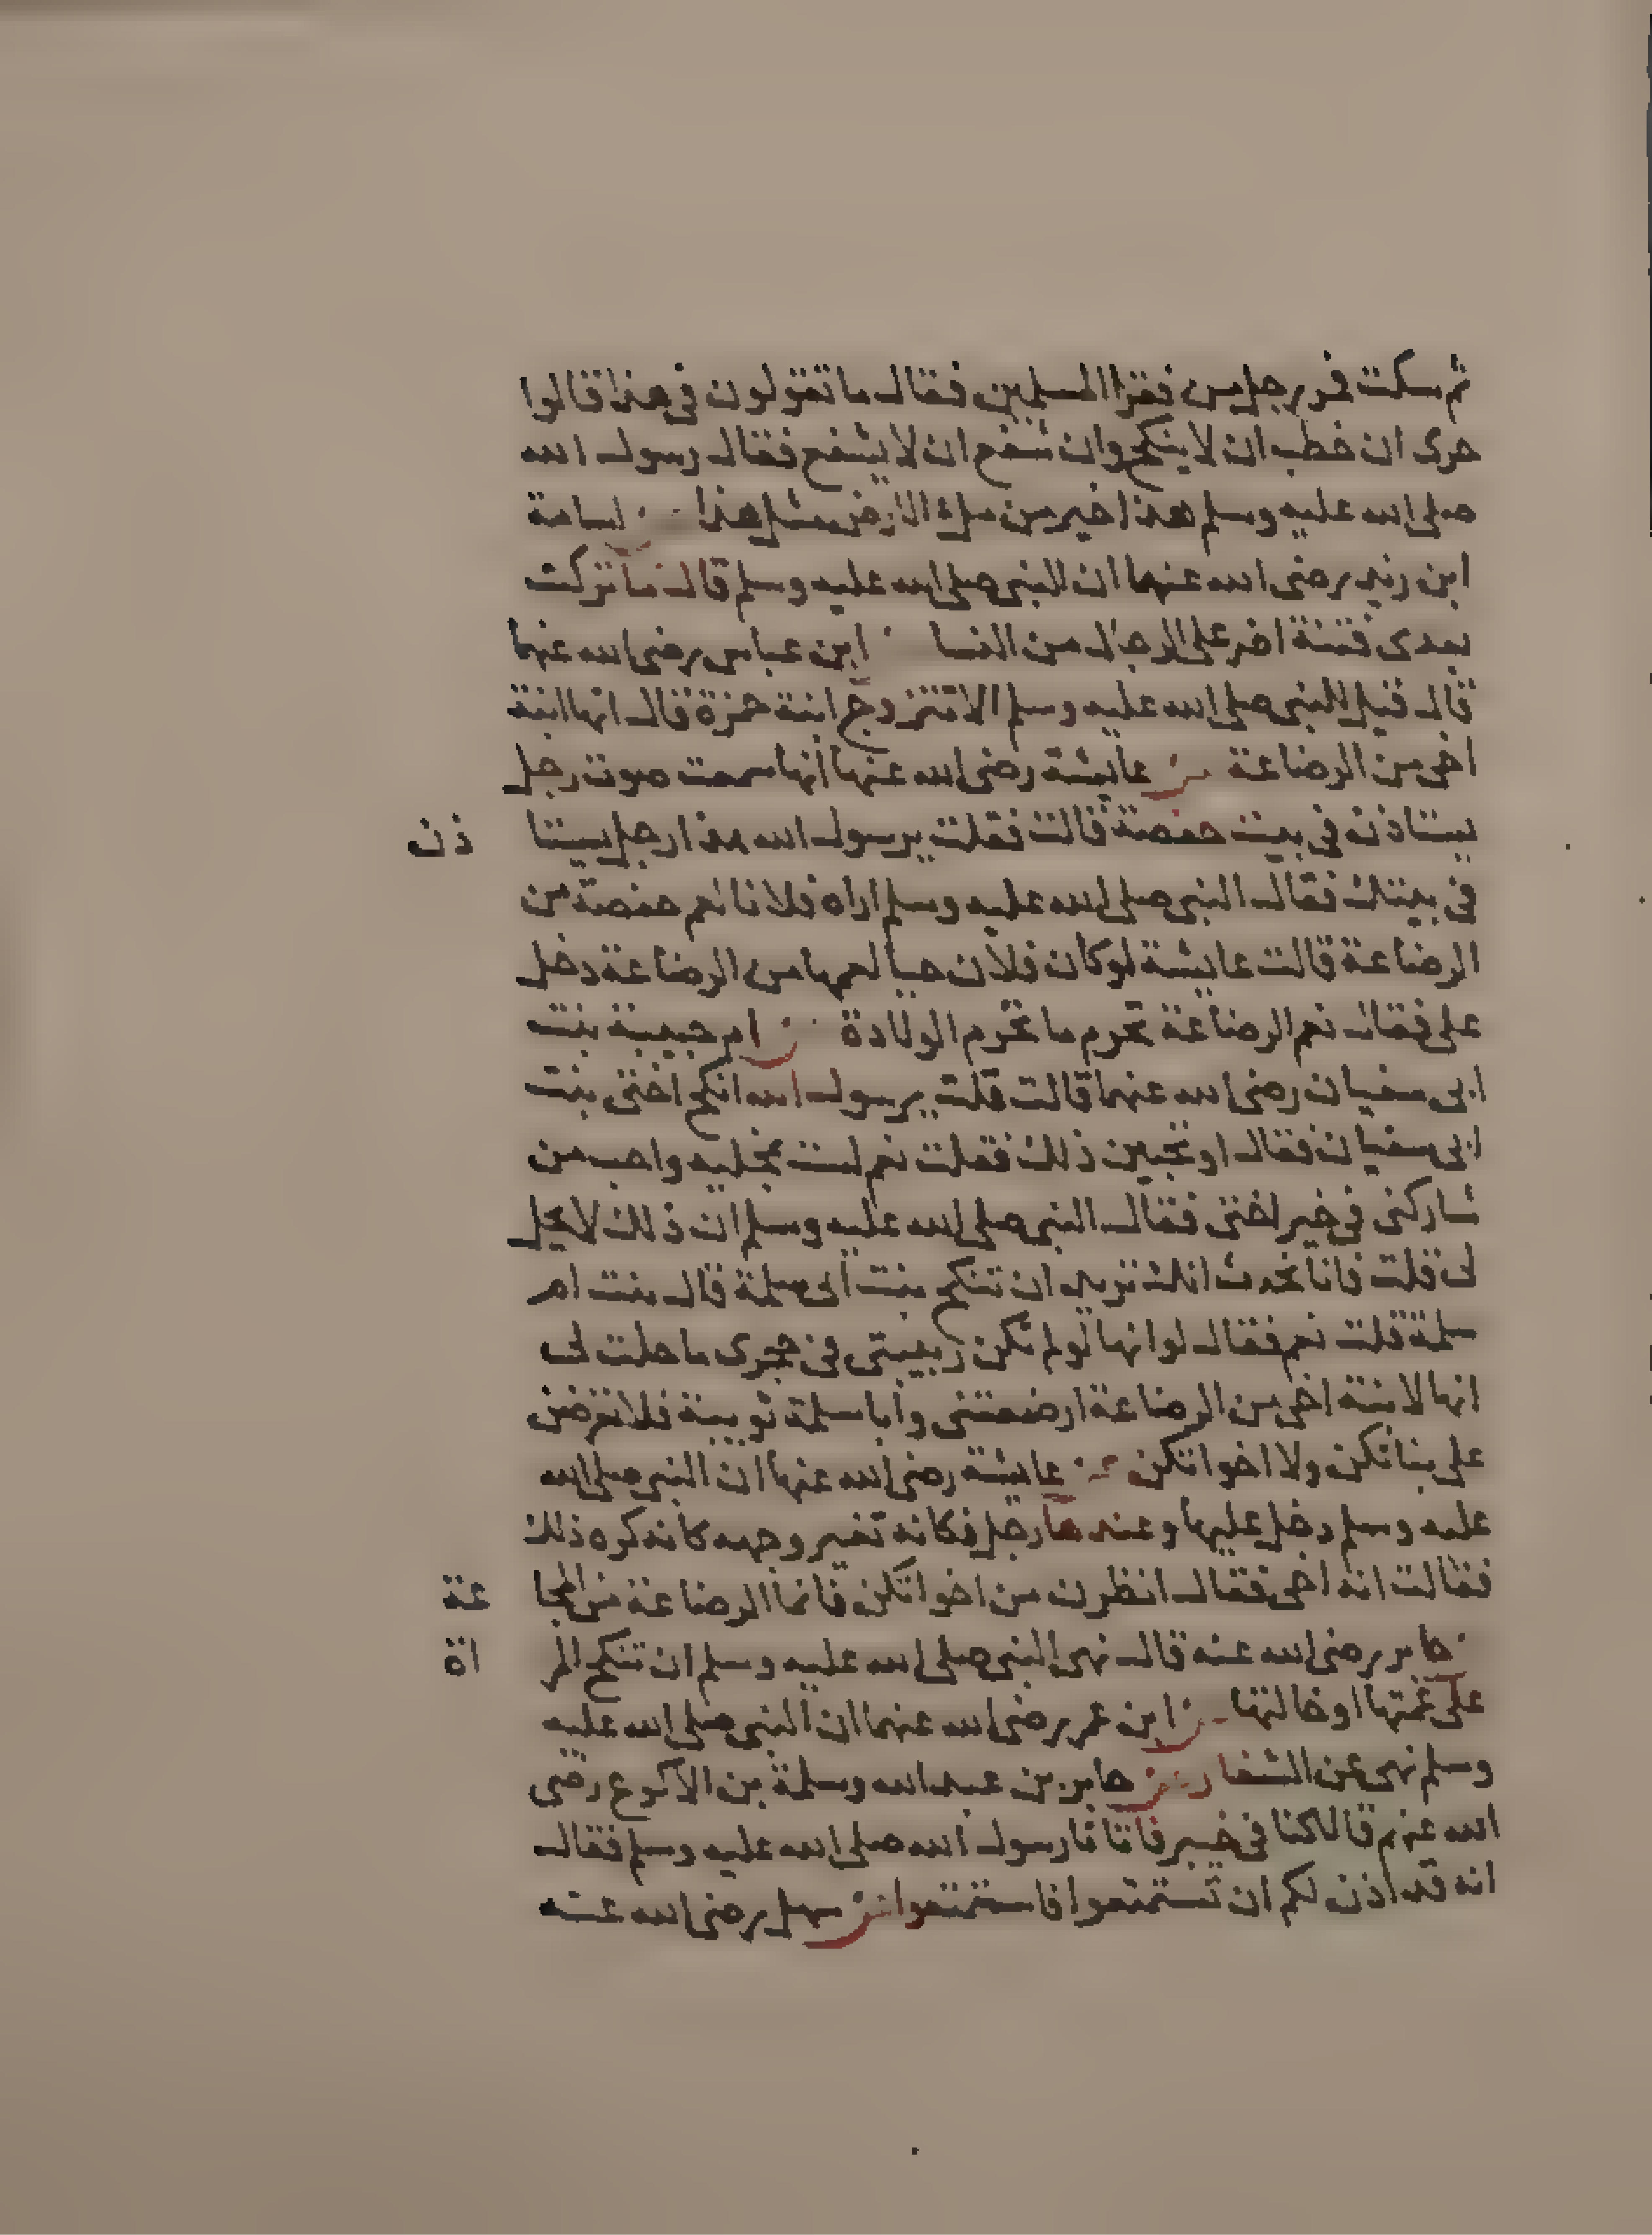 ثم سكت فمر رجل من فقرا المسلمين فقال ما تقولون في هذا قالوا
حرى ان خطب ان لا ينكح وان شفع ان لا يشفع فقال رسول الله
صلى الله عليه وسلم هذا خير من ملء الارض مثل هذا عن اسامة
ابن زيد رضى الله عنهما ان النبي صلى الله عليه وسلم قال ما تركت
بعدى فتنة اضر على الرجال من النسا ابن عباس رضى الله عنهما
قال قيل للنبي صلى الله عليه وسلم الا تتزوج ابنة حمزة قال انها ابنة
اخى من الرضاعة عن عايشة رضى الله عنها انها سمعت صوت رجل
يستاذن في بيت حفصة قالت فقلت يرسول الله هذا رجل يستا ذن
في بيتك فقال النبي صلى الله عليه وسلم اراه فلانا لعم حفصة من
الرضاعة قالت عايشة لو كان فلان حيا لعمها من الرضاعة دخل
على فقال نعم الرضاعة تحرم ما تحرم الولادة عن ام حبيبة بنت
ابى سفيان رضى الله عنهما قالت قلت يرسول الله انكح اختى بنت
ابى سفيان فقال او تحبين ذلك فقلت نعم لست بمخلية واحب من
شاركنى في خير اختى فقال النبي صلى الله عليه وسلم ان ذلك لا يحل
لى قلت فانا نحدث انك تريد ان تنكح بنت ابى سلمة قال بنت ام
سلمة قلت نعم فقال لو انها لو لم تكن ربيبتى في حجرى ما حلت لى
انها لابنة اخى من الرضاعة ارضعتنى وابا سلمة ثويبة فلا تعرضن
على بناتكن ولا اخواتكن عن عايشة رضى الله عنها ان النبي صلى الله
عليه وسلم دخل عليها وعندها رجل فكانه تغير وجهه كانه كره ذلك
فقالت انه اخى فقال انظرن من اخواتكن فانما الرضاعة من المجا عة
جابر رضى الله عنه قال نهى النبي صلى الله عليه وسلم ان تنكح المر اة
على عمتها او خالتها عن ابن عمر رضى الله عنهما ان النبي صلى الله عليه
وسلم نهى عن الشغار عن جابر بن عبد الله وسلمة بن الاكوع رضى
الله عنهم قالا كنا في جيش فاتانا رسول الله صلى الله عليه وسلم فقال
انه قد اذن لكم ان تستمتعوا فاستمتعوا عن سهل رضى الله عنه